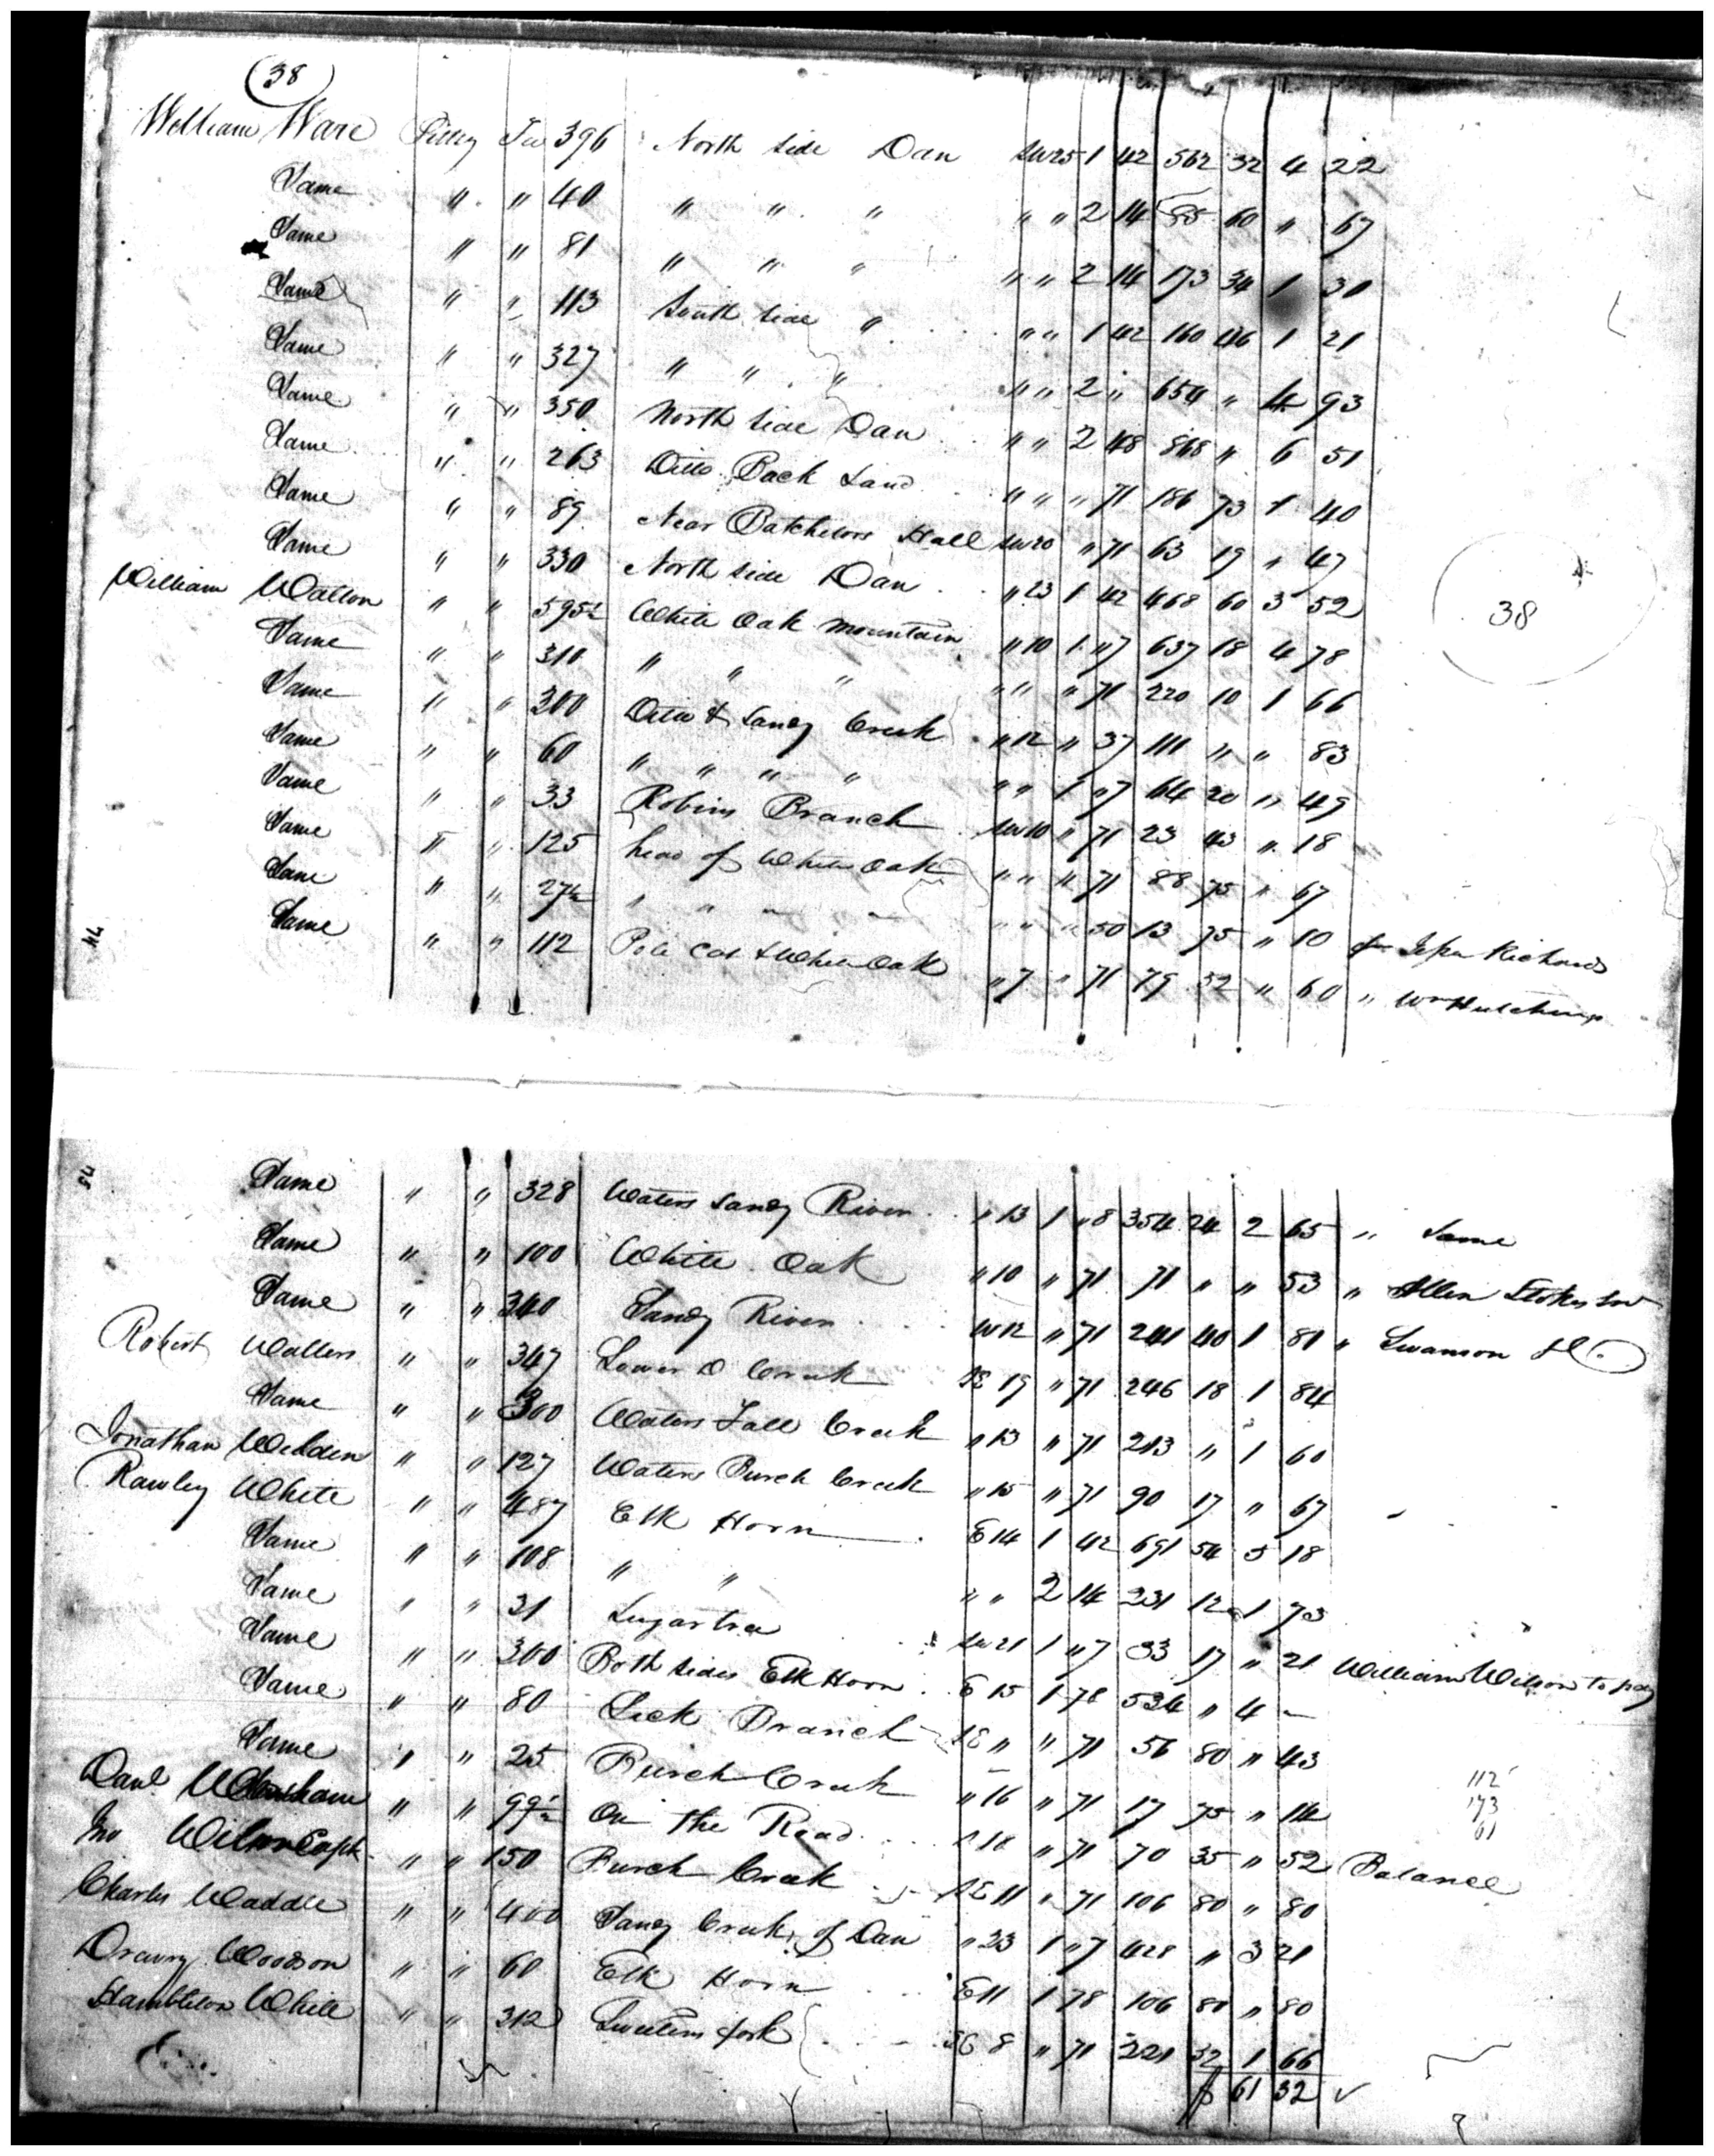 (38)
William Ware Pittsy Do 396 North Side Dan SW 25 1 42 562 32 4 22
Same " " 40 " " " " " 2 14 85 60 " 67
Same " " 81 " " " " " 2 14 173 34 1 30
Same " " 113 South Side " " " 1 42 160 46 1 21
Same " " 327 " " " " " 2 " 654 " 4 93
Same " " 350 North Side Dan " " 2 48 868 " 6 51
Same " " 263 Ditto Back Land " " " 71 186 73 1 40
Same " " 89 Near Batchelors Hall SW 20 " 71 63 19 " 47
Same " " 330 North Side Dan " 23 1 42 468 60 3 52
William Walton " " 595½ White Oak Mountain " 10 1 "7 637 18 4 78
Same " " 310 " " " " " " 71 220 10 1 66
Same " " 300 Ditto & Sandy Creek " 12 " 37 111 " " 83
Same " " 60 " " " " " " 1 "7 64 20 " 49
Same " " 33 Robins Branch SW 10 " 71 23 43 " 18
Same " " 125 head of White Oak " " " 71 88 75 " 67
Same " " 27½ " " " " " " " 50 13 75 " 10 of Richards
Same " " 112 Pole Cat & White Oak " 7 " 71 79 52 " 60 " Wm Hutchings
38
Same " " 328 Waters Sandy River " 13 1 "8 354 24 2 65 " Same
Same " " 100 White Oak " 10 " 71 71 " " 53 " Allen Stokes
Same " " 340 Sandy River W 12 " 71 241 40 1 81 " Swanson
Robert Walters " " 347 Lower D Creek SE 19 " 71 246 18 1 84
Same " " 300 Waters Fall Creek " 13 " 71 213 " 1 60
Jonathan Weldin " " 127 Waters Burch Creek " 15 " 71 90 17 " 67
Rawley White " " 487 Elk Horn E 14 1 42 691 54 5 18
Same " " 108 " " " " 2 14 231 12 1 73
Same " " 31 Sugartree SW 21 1 "7 33 17 " 21 William Wilson to pay
Same " " 300 Both Sides Elk Horn E 15 1 78 534 " 4 —
Same " " 80 Lick Branch SE " " 71 56 80 " 43
Same " " 25 Burch Creek " 16 " 71 17 75 " 14
112
173
61
Danl " " 99½ On the Road 18 " 71 70 35 " 52 Balance
Jno Wilson Capt " " 150 Burch Creek SE 11 " 71 106 80 " 80
Charles Waddle " " 400 Sandy Creek of Dan " 23 1 "7 428 " 3 21
Drawry Woodson " " 60 Elk Horn E 11 1 78 106 80 " 80
Hambleton White " " 312 fork SE 8 " 71 221 32 1 66
$ 61 32